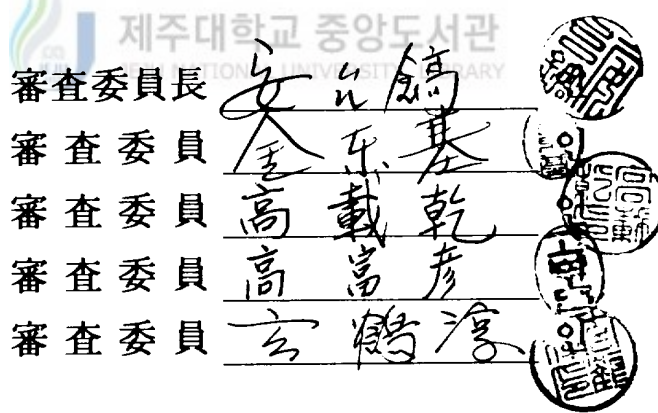 제주대학교 중앙도서관
JEJU NATIONAL UNIVERSITY LIBRARY
審査委員長 安 鎬
審査委員 金 基
審査委員 高載乾
審査委員 高富彦
審査委員 玄鶴淳